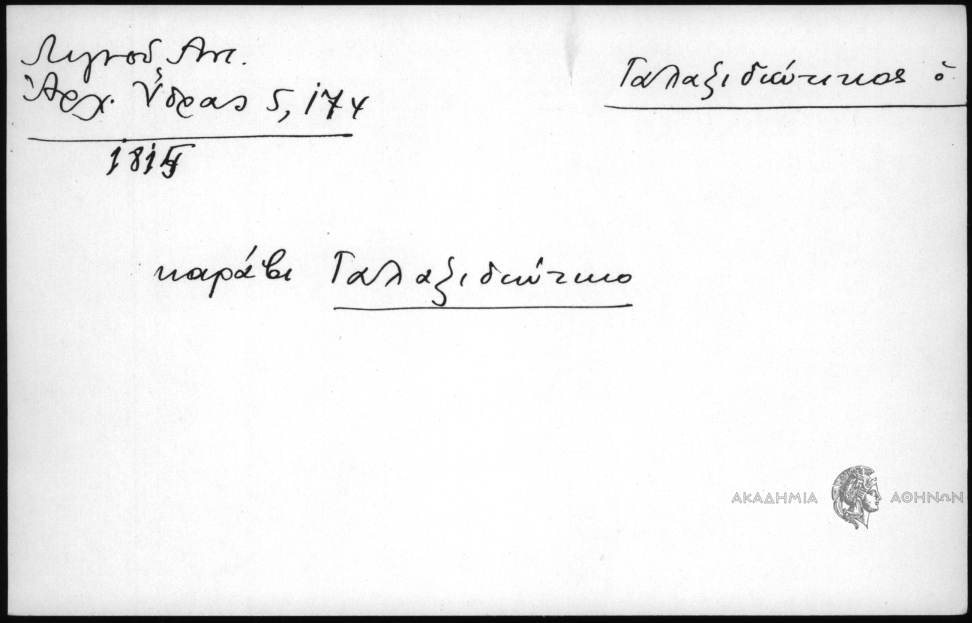 Λιγνοῦ Ἀντ.
Ἀρχ. Ὕδρας 5, 174
1815
Γαλαξιδιώτικος ὁ
καράβι Γαλαξιδιώτικο
ΑΚΑΔΗΜΙΑ ΑΘΗΝΩΝ